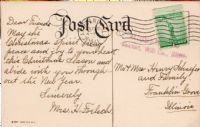 Post Card
Dear Friends
May the
Christmas Spirit bring
peace and joy to your heart
this Christmas Season and
abide with you through-
out the New Year.
Sincerely
Mrs. H.
Mr & Mrs Henry
and Family
Franklin Grove
Illinois